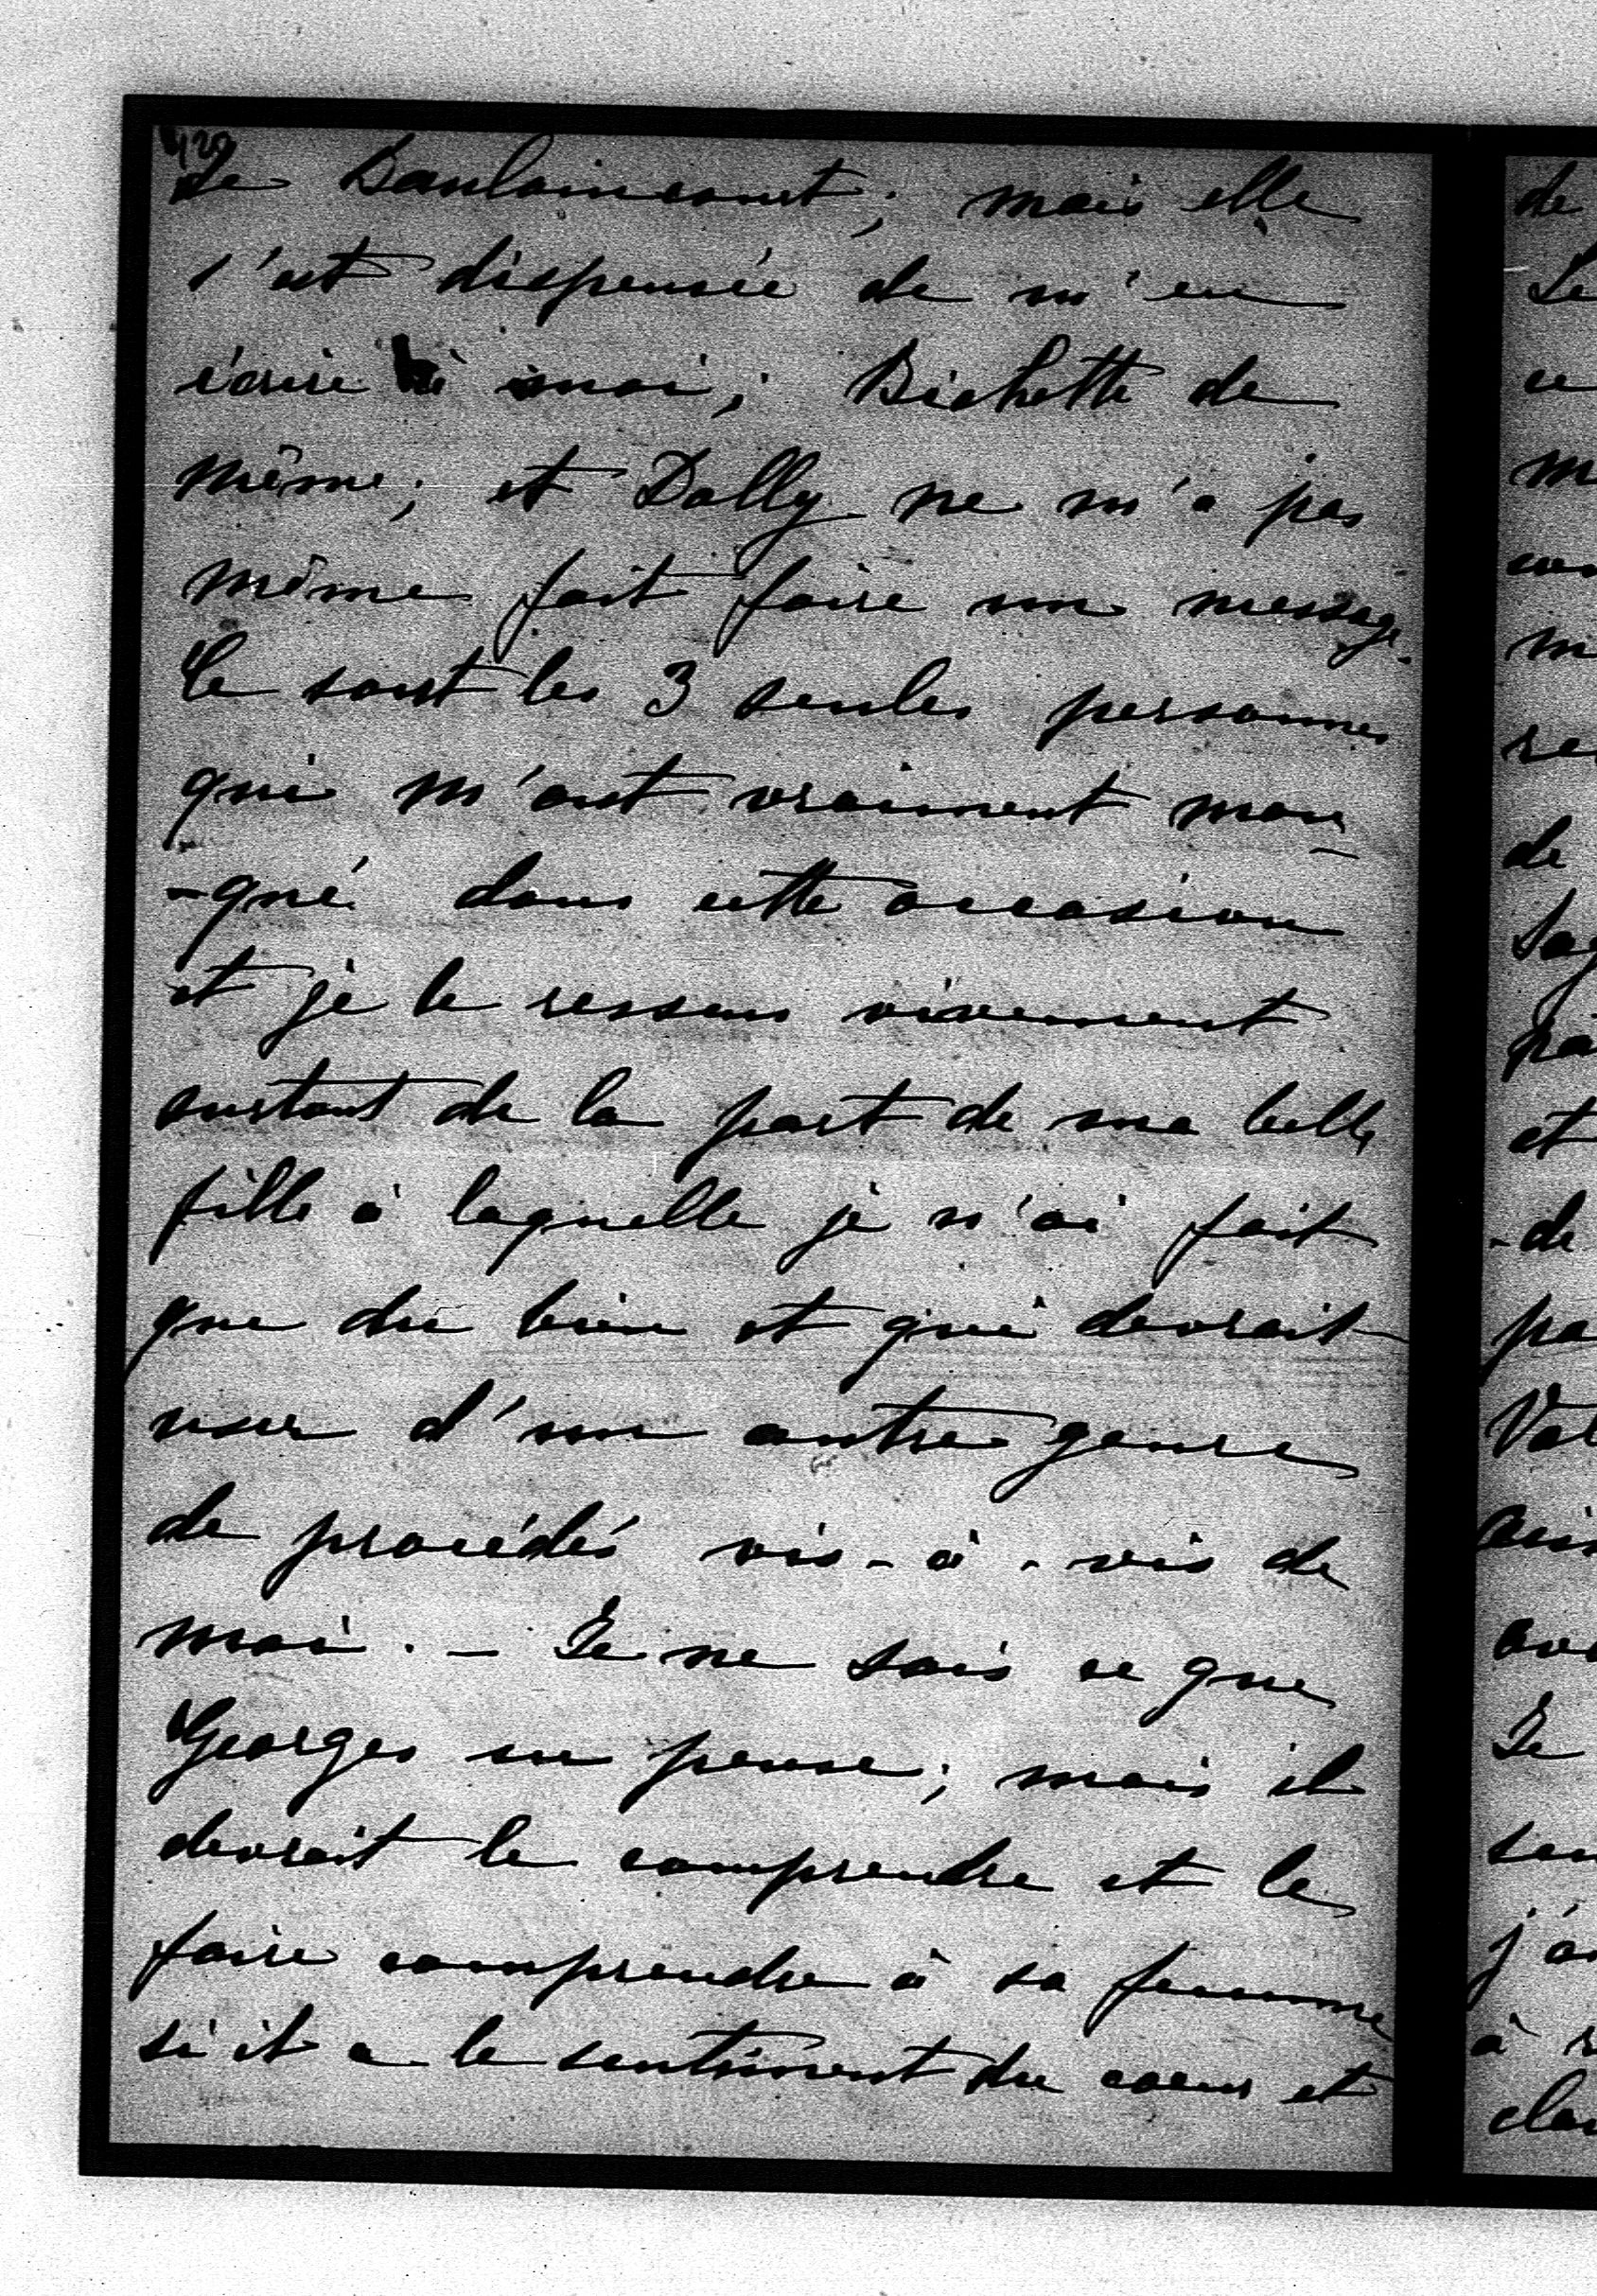 420
de Baulaincourt; mais elle
s'est dispensée de m'en
écrire à moi; Bichette de
même; et Dolly ne m'a pas
même fait faire un message.
Ce sont les 3 seules personnes
qui m'ont vraiment man-
-qué dans cette occasion
et je le ressens vivement
surtout de la part de ma belle
fille à laquelle je n'ai fait
que du bien et qui devrait
user d'un autre genre
de procédés vis-à-vis de
moi. — Je ne sais ce que
Georges en pense; mais il
devrait le comprendre et le
faire comprendre à sa femme
si il a le sentiment du coeur et
de
Le
ce
m
m
de
et
-de
pa
Je
j'a
à